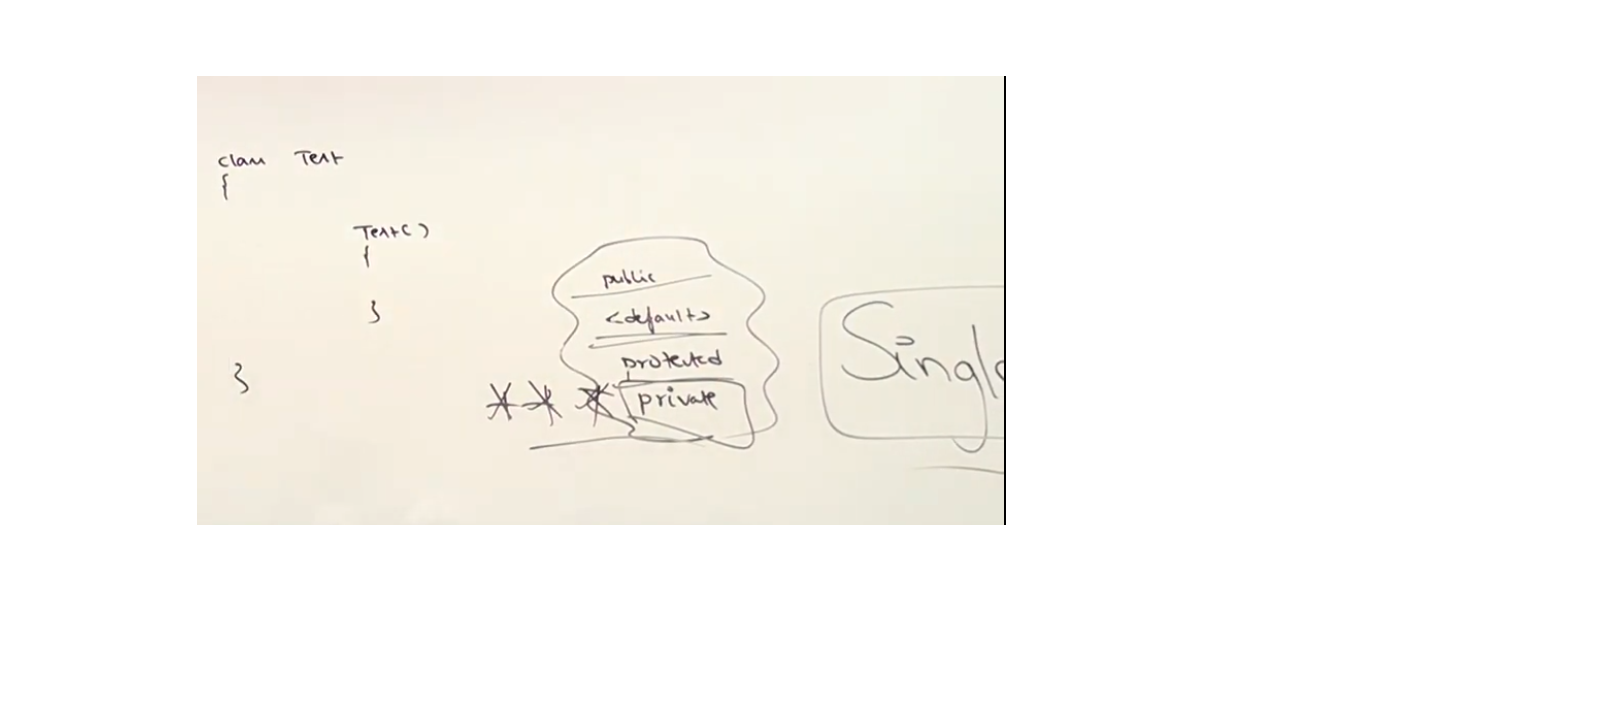 class Test
{
Test()
{
}
}
public
<default>
protected
*** private
Single